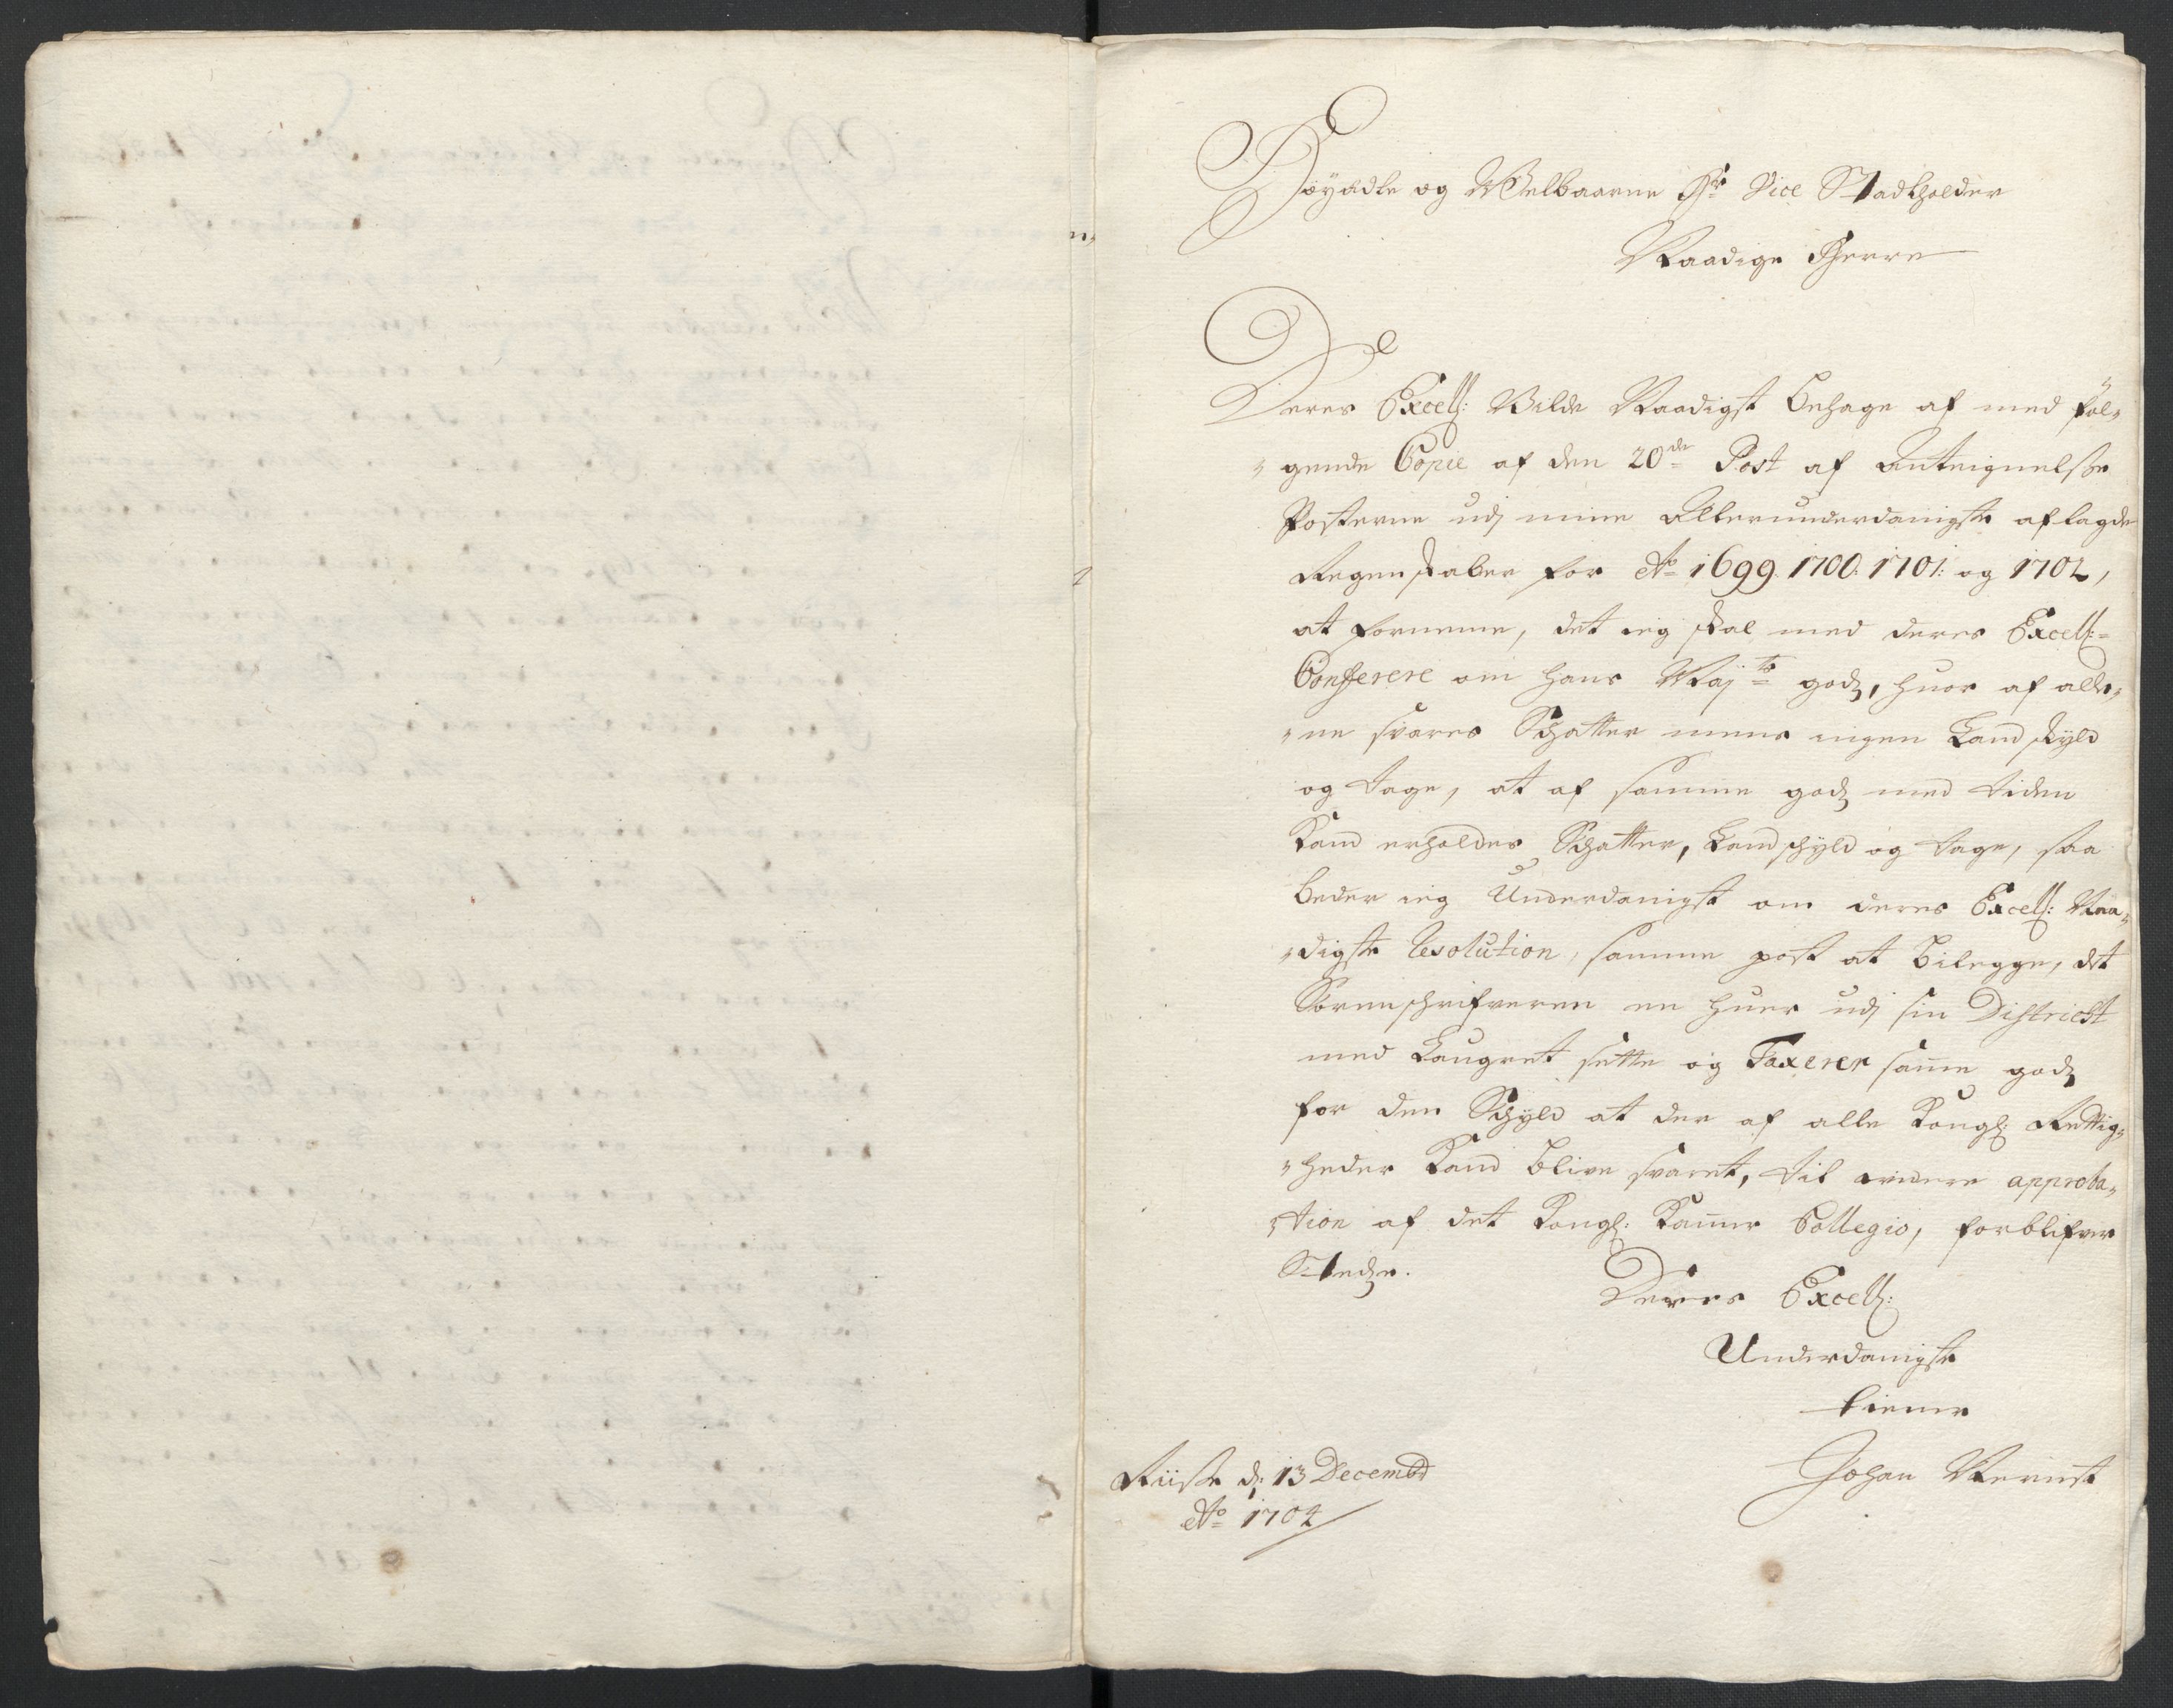 Høyædle og Welbaarne Hr Vice Stadtholder
Naadige Herre
Deres Excell: Wilde Naadigst behage af med føl„
„gende Copie af den 20de Post af Anteignelsse
Posterne udj mine Allerunderdanigste aflagde
Regenskaber for Ao 1699. 1700. 1701: og 1702,
at fornemme, det ieg skal med deres Excell:
Confferere om hans Maj ts godz, huor af alle„
„ne svares Schatter mens ingen Landskyld
og tage, at af samme godz med tiden
Kand erholdes Schatter, Landschyld og tage, saa
beder ieg Underdanigst om deres Excell: Naa„
„digste Resolution, samme post at bilegge, det
Sorenschrifveren en huer udj sin District
med Laugret sette og Taxerer same godz
for den Schyld at der af alle Kongl: Rettig„
„heder Kand blive svaret, til widere approba„
„tion af det Kongl: Kamer Collegio, forblifver
Stedze.
Deres Excell:
Underdanigste
tiener
Riisse d: 13 Decembr
Ao 1704
Johan